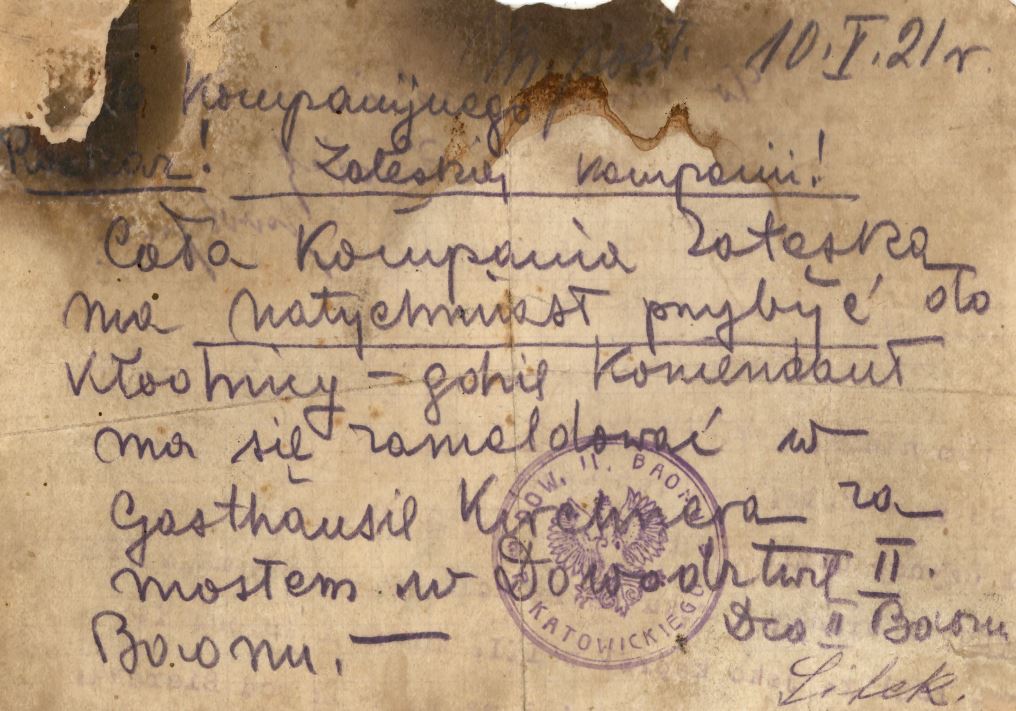 10.V.21 r.
Kompanijnego
Rozkaz! Załęskiej kompanii!
Cała Kompania załęska
ma natychmiast przybyć do
Kłodnicy – gdzie Komendant
ma się zameldować w
Gasthausie Kirchnera za
mostem w Dowództwie II.
Baonu. —
Dco II Baonu
DOW. II. BAON
KATOWICKIEGO